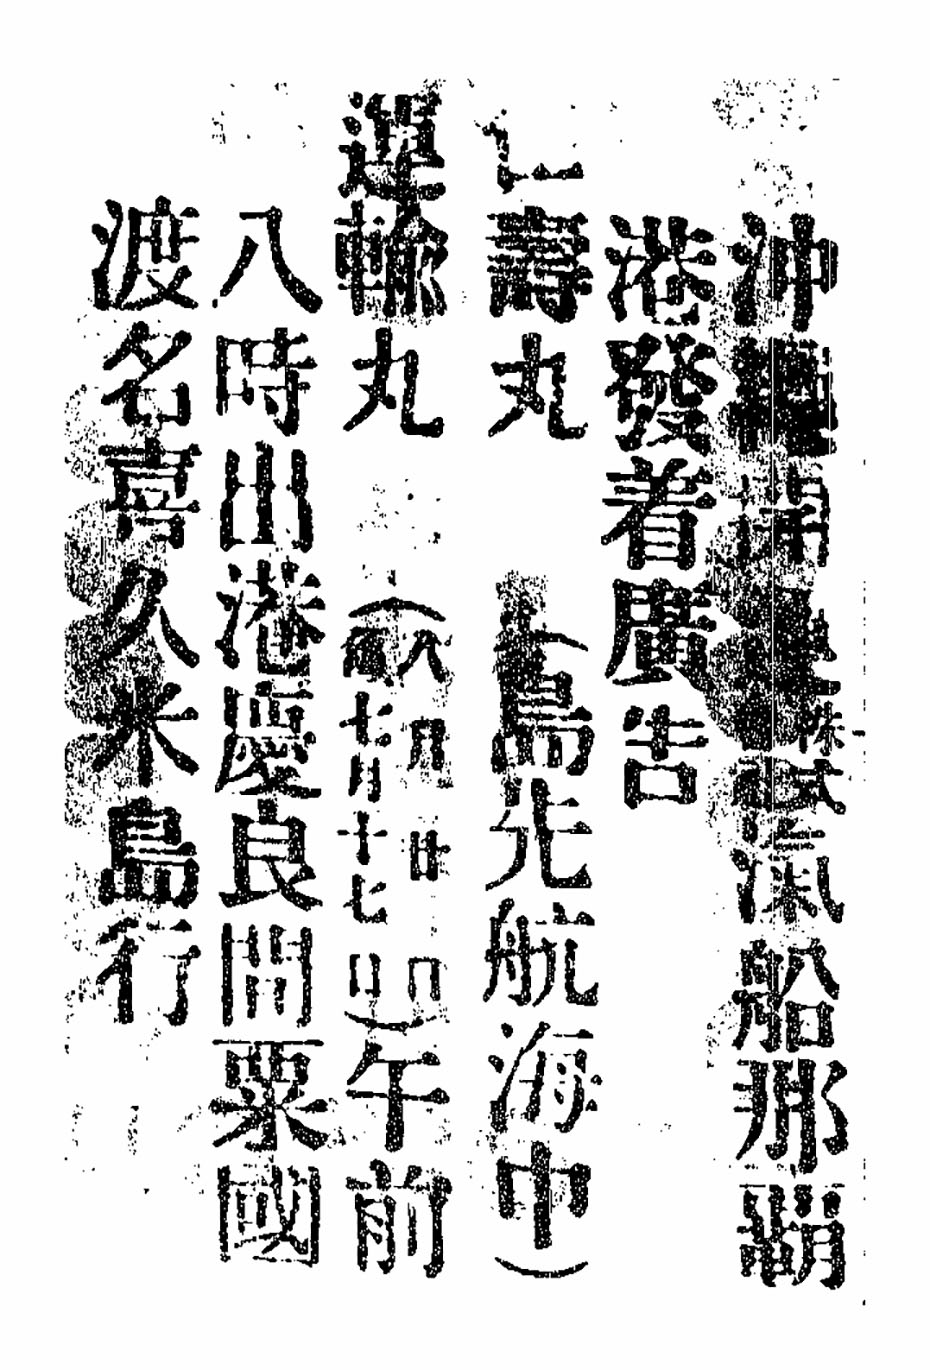 沖繩
株式
滊船那覇
港發着廣告
壽丸
(島先航海中)
運輸丸
(八月廿
七月十七日)午前
八時出港慶良間粟國
渡名喜久米島行